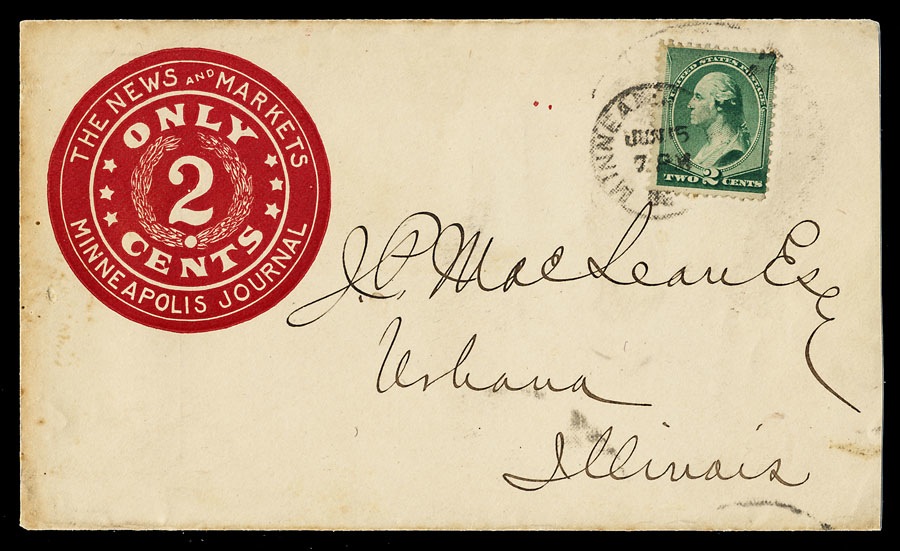 THE NEWS AND MARKETS
ONLY
2
CENTS
MINNEAPOLIS JOURNAL
UNITED STATES POSTAGE
TWO 2 CENTS
JUN 15
J.C. MacLean Esq
Urbana
Illinois